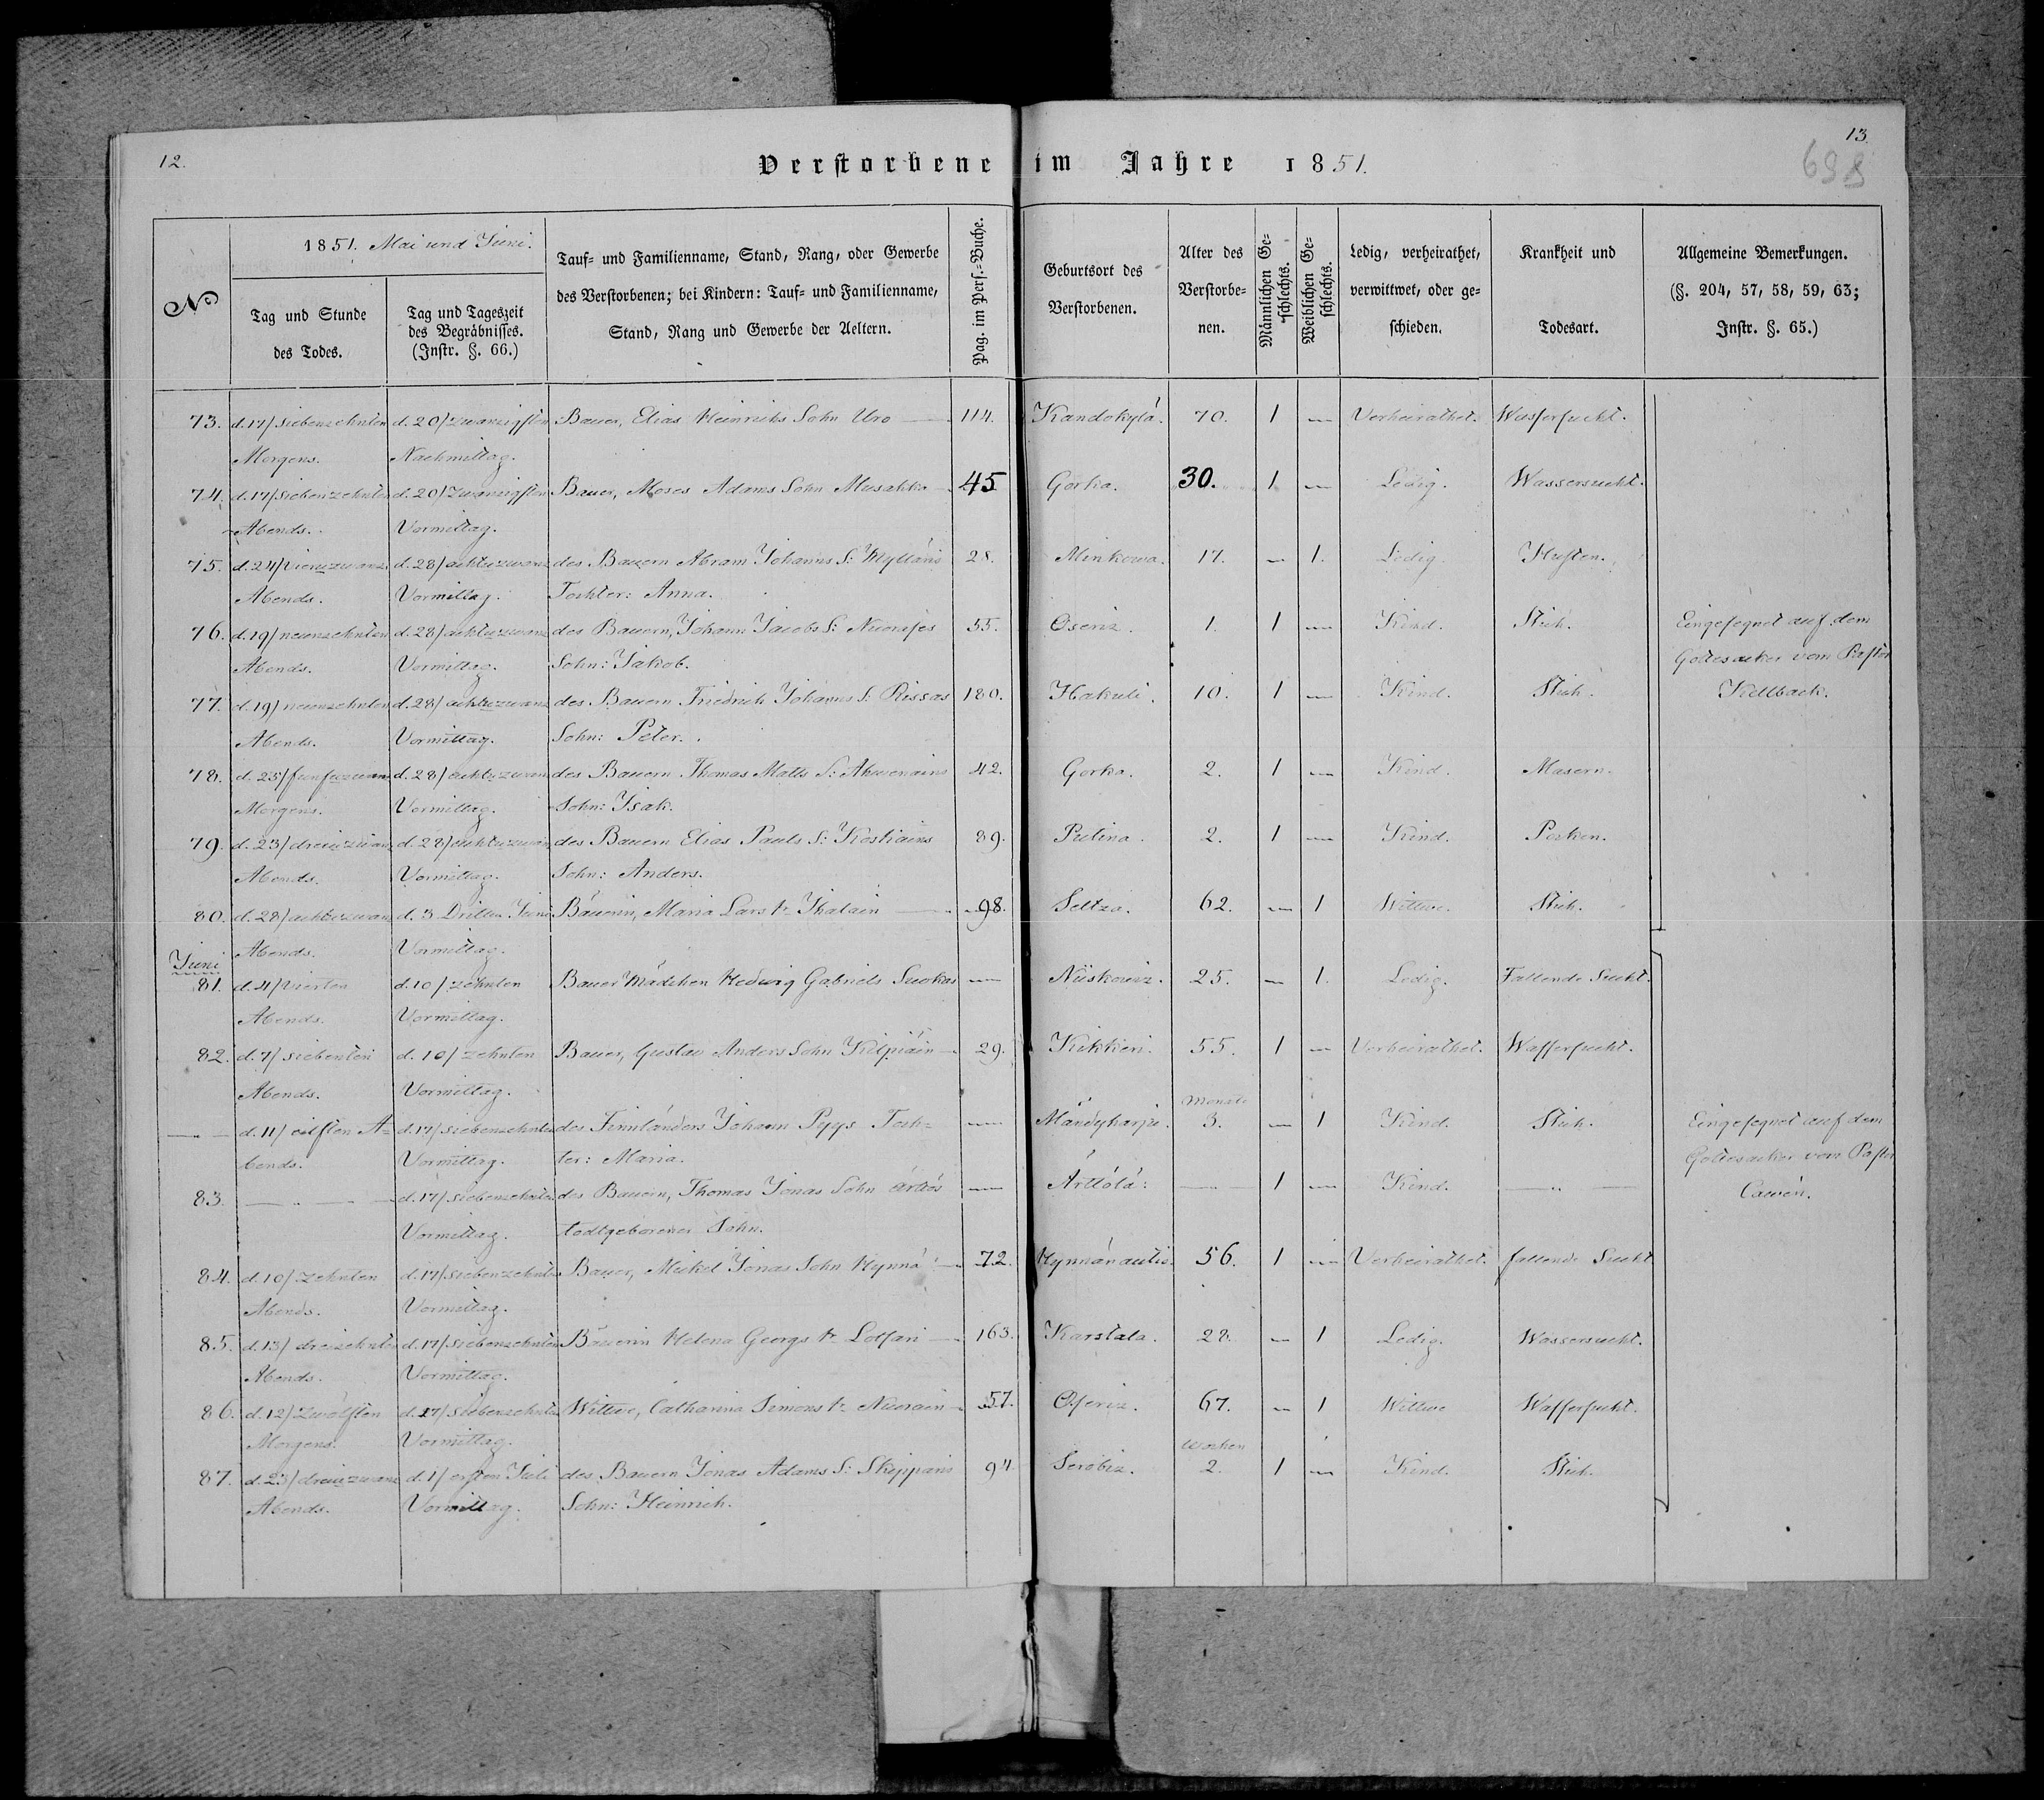 12.
13.
698
Verstorbene im Jahre 1851.
№
1851. Mai und Juni.
Tag und Stunde
des Todes.
Tag und Tageszeit
des Begräbnisses.
(Instr. §. 66.)
Tauf- und Familienname, Stand, Rang, oder Gewerbe
des Verstorbenen; bei Kindern: Tauf- und Familienname,
Stand, Rang und Gewerbe der Aeltern.
Pag. im Pers.-Buche.
Geburtsort des
Verstorbenen.
Alter des
Verstorbe-
nen.
Männlichen Ge-
schlechts.
Weiblichen Ge-
schlechts.
Ledig, verheirathet,
verwittwet, oder ge-
schieden.
Krankheit und
Todesart.
Allgemeine Bemerkungen.
(§. 204, 57, 58, 59, 63;
Instr. §. 65.)
73. d. 17/ siebenzehnten d. 20/ zwanzigsten Bauer, Elias Heinrichs Sohn Uro — 114. Kandokylä. 70. 1 — Verheirathet. Wassersucht.
Morgens. Nachmittag.
74. d. 17/ siebenzehnten d. 20/ zwanzigsten Bauer, Moses Adams Sohn Musakka 45 Gorka. 30. 1 — Ledig. Wassersucht.
Abends. Vormittag.
75. d. 24/ vieruzwanz d. 28/ achtuzwanz des Bauern Abram Johanns S: Mylläris 28. Minkowa. 17. — 1. Ledig. Husten.
Abends. Vormittag. Tochter: Anna.
76. d. 19/ neunzehnten d. 28/ achtuzwanz des Bauern, Johann Jacobs S: 55. Oseriz. 1. 1 — Kind. Stich. Eingesegnet auf dem
Abends. Vormittag. Sohn: Jakob. Gottesacker vom Pastor
77. d. 19/ neunzehnten d. 28/ achtuzwanz des Bauern Friedrich Johanns S: Rissas 180. Hakuli. 10. 1 — Kind. Stich. Killback.
Abends. Vormittag. Sohn: Peter.
78. d. 25/ funfuzwan d. 28/ achtuzwan des Bauern Thomas Matts S: Ahwenains 42. Gorka. 2. 1 — Kind. Masern.
Morgens. Vormittag. Sohn: Isak.
79. d. 23/ dreiuzwan d. 28/ achtuzwan des Bauern Elias Pauls S: Koskiains 89. Putina. 2. 1 — Kind. Pocken.
Abends. Vormittag. Sohn: Anders.
80. d. 28/ achtuzwan d. 3 Dritten Juni Bäuerin, Maria Lars tr. Ihalain — 98. Seltza. 62. — 1 Wittwe. Stich.
Abends. Vormittag.
Juni
81. d. 4/ vierten d. 10/ zehnten Bauer Mädchen Hedwig Gabriels Suokas — Niiskowiz. 25. — 1. Ledig. Fallende Sucht.
Abends. Vormittag.
82. d. 7/ siebenten d. 10/ zehnten Bauer, Gustav Anders Sohn Kilpiäin — 29. Kikkeri. 55. 1 — Verheirathet. Wassersucht.
Abends. Vormittag.
Monate
— d. 11/ eilften A- d. 17/ siebenzehnten des Finnländers Johann Pyys Toch- — Mändyharju. 3. — 1 Kind. Stich. Eingesegnet auf dem
bends. Vormittag. ter: Maria. Gottesacker vom Pastor
83. — d. 17/ siebenzehnten des Bauern, Thomas Jonas Sohn — Ärttölä. — 1 — Kind. — Cawén.
Vormittag. todtgeborener Sohn.
84. d. 10/ zehnten d. 17/ siebenzehnten Bauer, Mickel Jonas Sohn Hynnä — 72. Hynnänautio. 56. 1 — Verheirathet. fallende Sucht
Abends. Vormittag.
85. d. 13/ dreizehnten d. 17/ siebenzehnten Bäuerin Helena Georgs tr. — 163. Karstala. 28. — 1 Ledig. Wassersucht.
Abends. Vormittag.
86. d. 12/ zwölften d. 17/ siebenzehnten Wittwe, Catharina Simons tr. Nuorain — 57. Oseriz. 67. — 1 Wittwe Wassersucht.
Morgens. Vormittag.
Wochen
87. d. 23/ dreiuzwanz d. 1/ ersten Juli des Bauern Jonas Adams S: Skipparis 94 Serebiz. 2. 1 — Kind. Stich.
Abends. Vormittag. Sohn: Heinrich.